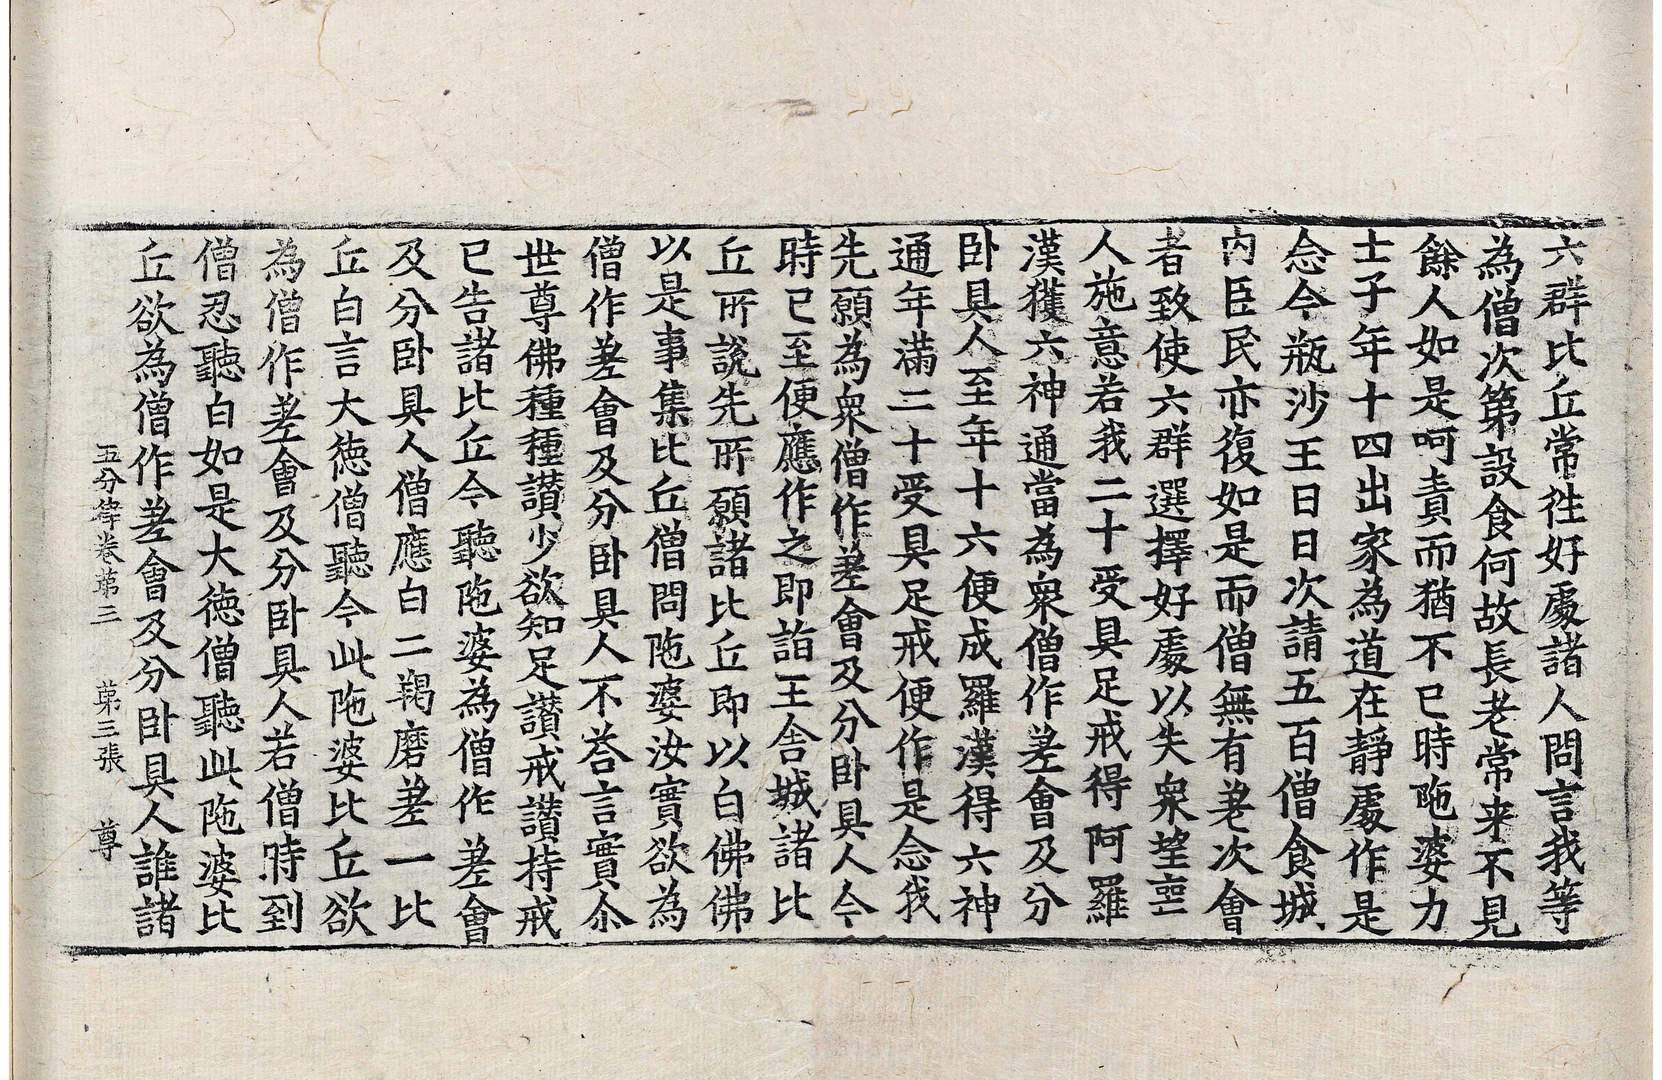 六群比丘常往好處諸人問言我等
為僧次第設食何故長老常来不見
餘人如是呵責而猶不已時陁婆力
士子年十四出家為道在靜處作是
念今瓶沙王日日次請五百僧食城
內臣民亦復如是而僧無有差次會
者致使六群選擇好處以失衆望壹
人施意若我二十受具足戒得阿羅
漢獲六神通當為衆僧作差會及分
卧具人至年十六便成羅漢得六神
通年滿二十受具足戒便作是念我
先願為衆僧作差會及分卧具人今
時已至便應作之即詣王舍城諸比
丘所說先所願諸比丘即以白佛佛
以是事集比丘僧問陁婆汝實欲為
僧作差會及分卧具人不荅言實尒
世尊佛種種讃少欲知足讃戒讃持戒
已告諸比丘今聽陁婆為僧作差會
及分卧具人僧應白二羯磨差一比
丘白言大徳僧聽今此陁婆比丘欲
為僧作差會及分卧具人若僧時到
僧忍聽白如是大徳僧聽此陁婆比
丘欲為僧作差會及分卧具人誰諸
五分律卷苐三 苐三張 尊